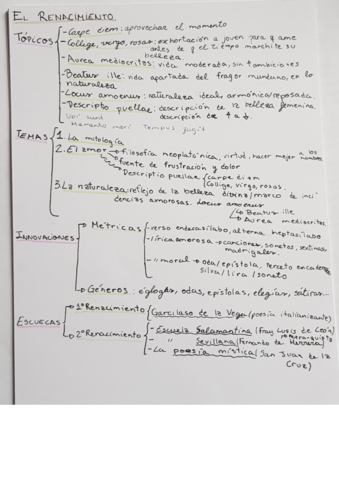 EL RENACIMIENTO
TÓPICOS
- Carpe diem: aprovechar el momento
- Collige, virgo, rosas: exhortación a joven para q ame
antes de q el tiempo marchite su
belleza
- Aurea mediocritas: vida moderada, sin ambiciones
- Beatus ille: vida apartada del fragor mundano, en la
naturaleza
- Locus amoenus: naturaleza ideal armónica/reposada.
- Descriptio puellae: descripción de la belleza femenina.
descripción de
Ubi sunt
Memento mori Tempus fugit
TEMAS
1. La mitología
2. El amor
filosofía neoplatónica, virtud, hacer mejor a los
hombres
fuente de frustración y dolor
Descriptio puellae
carpe diem
Collige, virgo, rosas.
3. La naturaleza: reflejo de la belleza divina/marco de inci
dencias amorosas. Locus amoenus
Beatus ille
Aurea mediocritas
INNOVACIONES
Métricas
- verso endecasílabo, alterna heptasílabo
- lírica amorosa → canciones, sonetos, sextinas
madrigales.
- " moral → oda/epístola, terceto encadena
silva/lira/soneto
Géneros: églogas, odas, epístolas, elegías, sátiras...
ESCUELAS
1º Renacimiento
Garcilaso de la Vega (poesía italianizante)
2º Renacimiento
- Escuela Salamantina (Fray Luis de León)
- " Sevillana (Fernando de Herrera)
- La poesía mística (San Juan de la
Cruz)